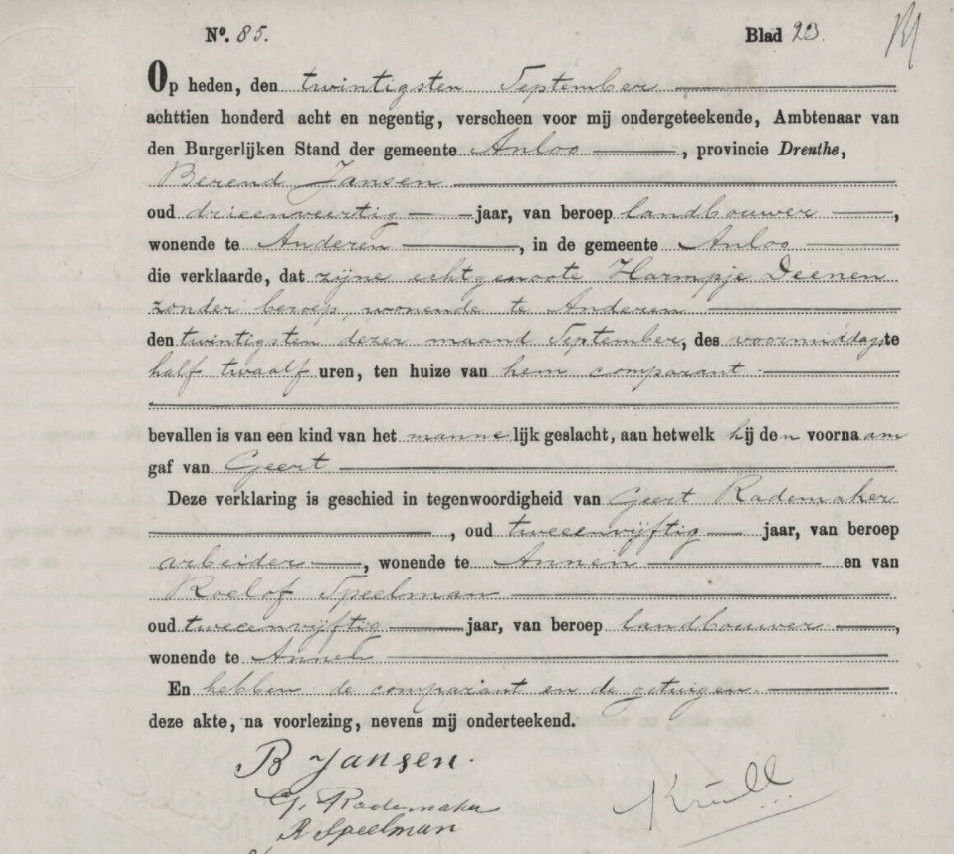 No. 85. Blad 23.
Op heden, den twintigsten September
achttien honderd acht en negentig, verscheen voor mij ondergeteekende, Ambtenaar van
den Burgerlijken Stand der gemeente Anloo, provincie Drenthe,
Berend Jansen
oud drieenveertig jaar, van beroep landbouwer,
wonende te Anderen, in de gemeente Anloo
die verklaarde, dat zijne echtgenoote Harmpje Deenen
zonder beroep, wonende te Anderen
den twintigsten dezer maand September, des voormiddags te
half twaalf uren, ten huize van hem comparant
bevallen is van een kind van het mannelijk geslacht, aan hetwelk hij den voornaam
gaf van Geert
Deze verklaring is geschied in tegenwoordigheid van Geert Rademaker
, oud tweeenvijftig jaar, van beroep
arbeider, wonende te Annen en van
Roelof Speelman
oud tweeenvijftig jaar, van beroep landbouwer,
wonende te Annen
En hebben de comparant en de getuigen
deze akte, na voorlezing, nevens mij onderteekend.
B Jansen.
G. Rademaker
R Speelman